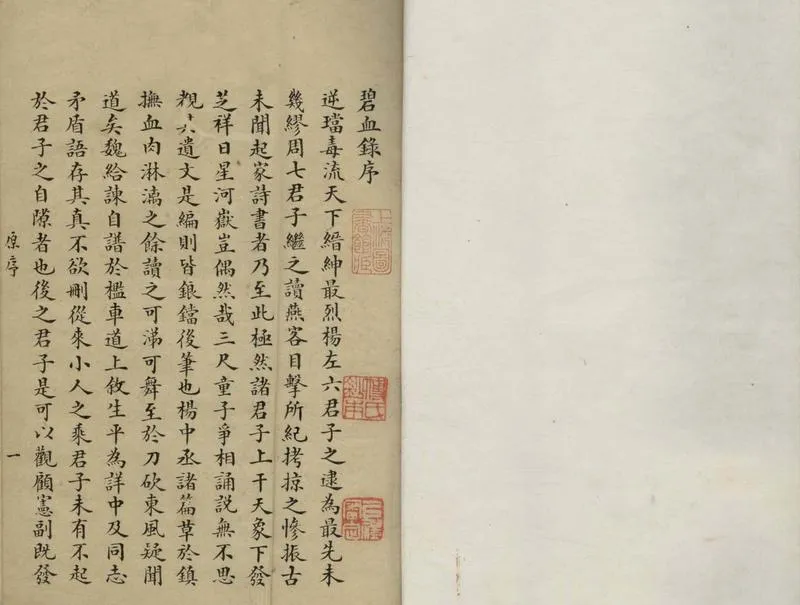 碧血錄序
逆璫毒流天下縉紳最烈楊左六君子之逮為最先未
幾繆周七君子繼之讀燕客目擊所紀拷掠之慘振古
未聞起家詩書者乃至此極然諸君子上干天象下發
芝祥日星河嶽豈偶然哉三尺童子爭相誦説無不思
遺文是編則皆鋃鐺後筆也楊中丞諸篇草於鎮
撫血肉淋漓之餘讀之可涕可舞至於刀砍東風疑聞
道矣魏給諫自譜於檻車道上敘生平為詳中及同志
矛盾語存其真不欲刪從來小人之乘君子未有不起
於君子之自隙者也後之君子是可以觀顧憲副既發
原序
一
上海圖書館藏